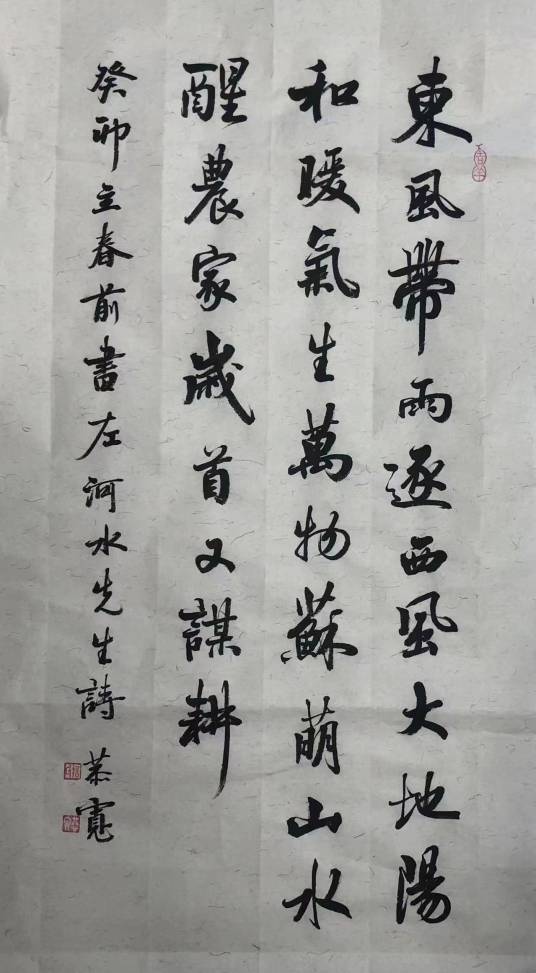 東風帶雨逐西風大地陽
和暖氣生萬物蘇萌山水
醒農家歲首又謀耕
癸卯立春前書左河水先生詩 恭寬